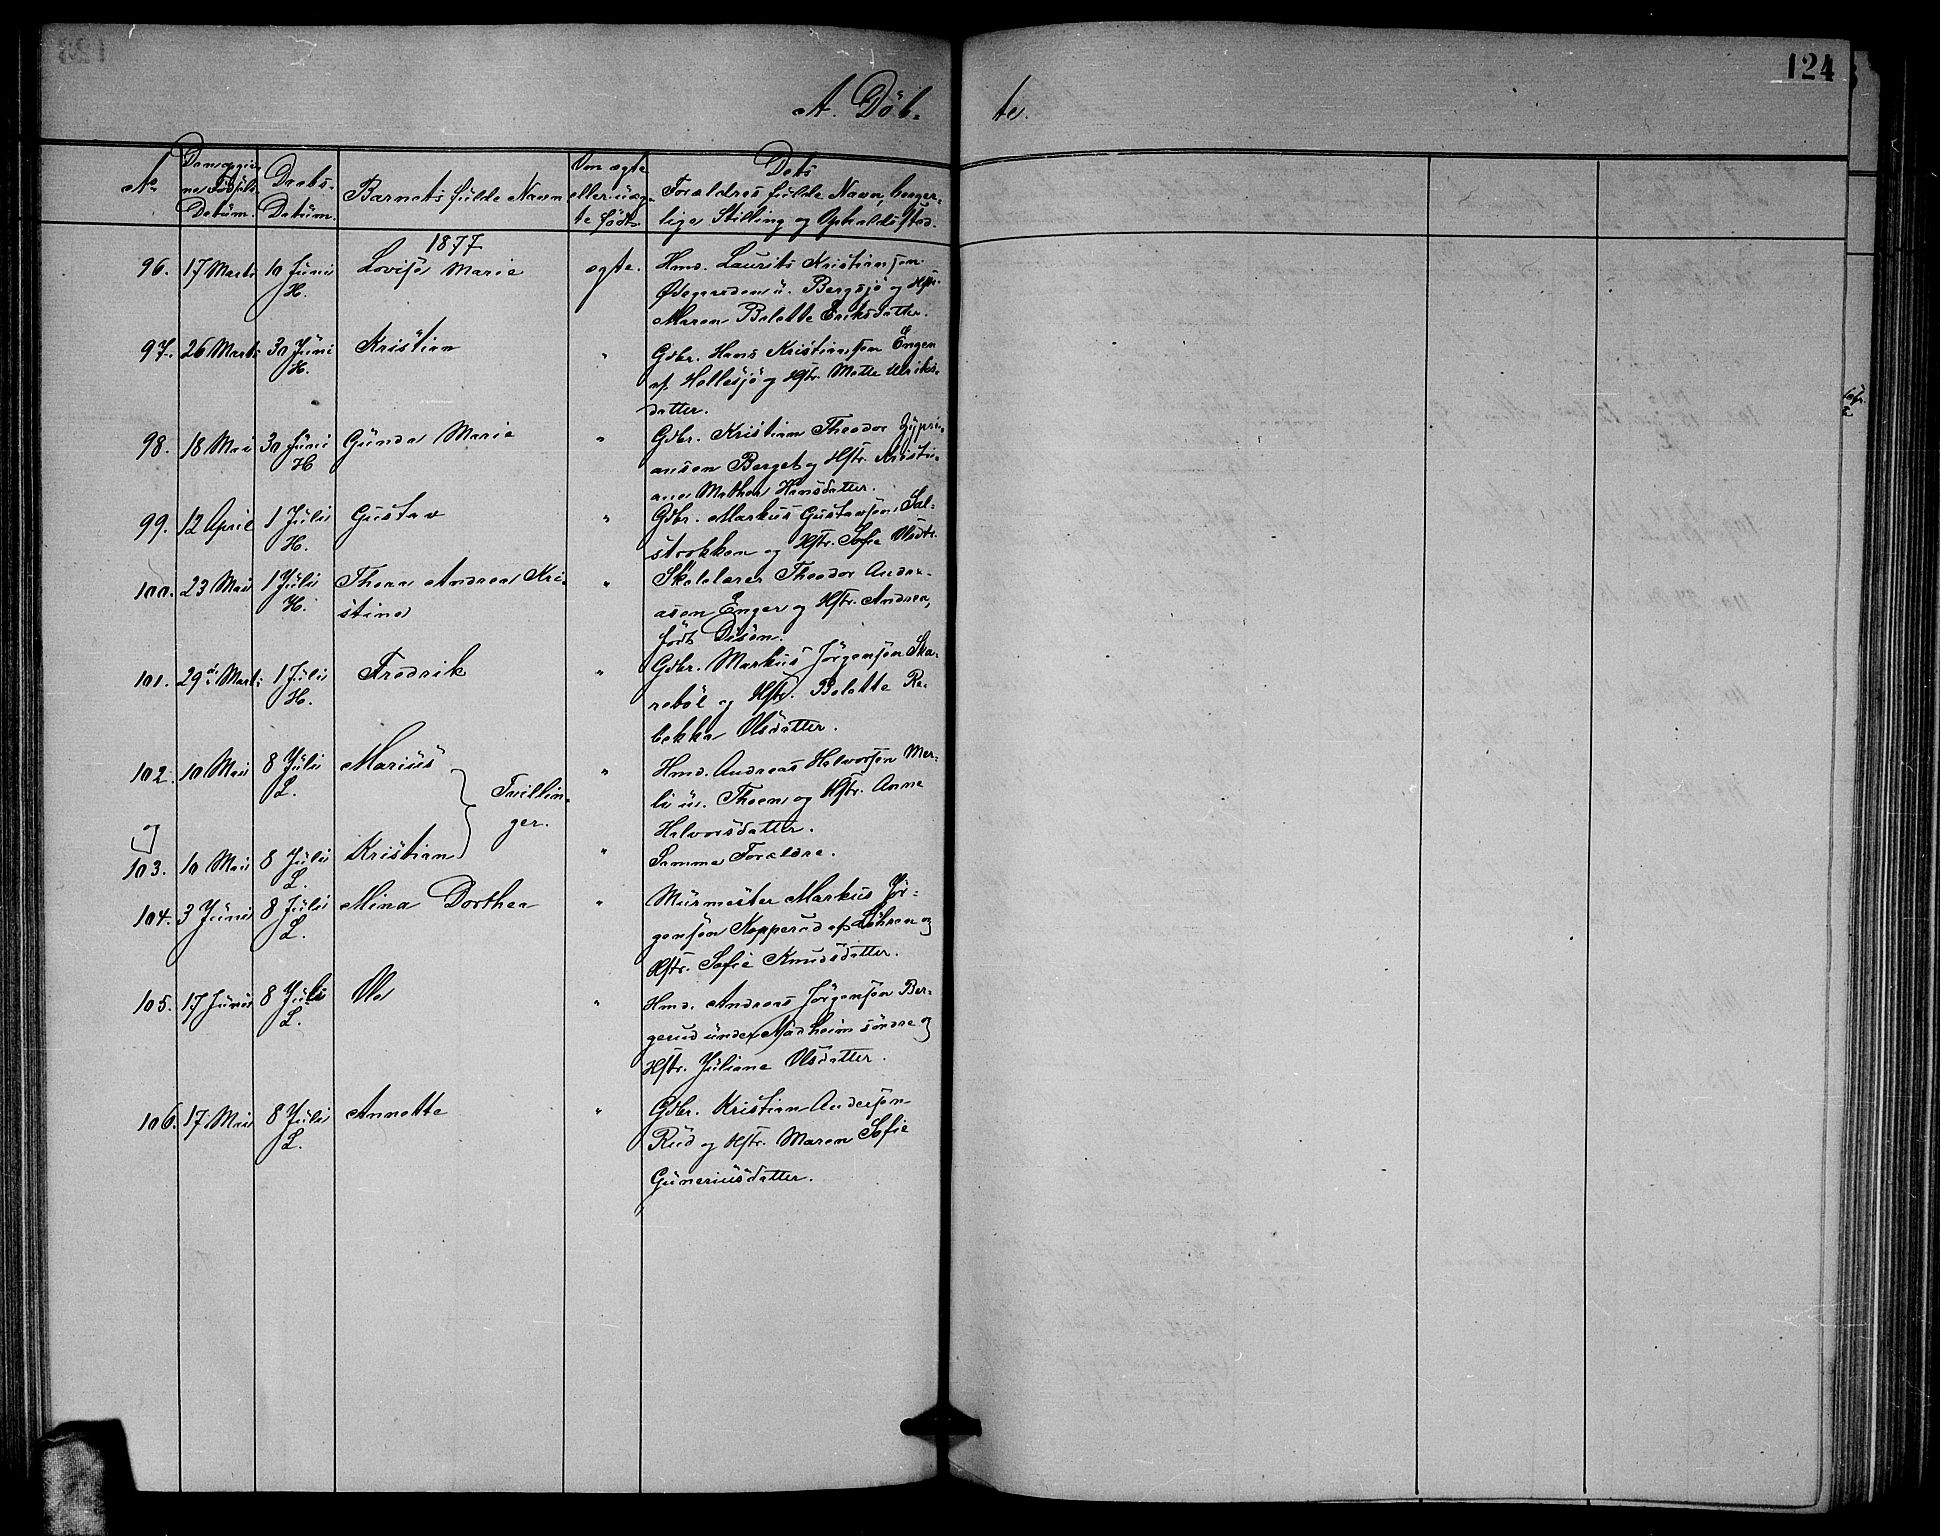 124
A. Döb- te.
No
Den opgivne Födsels-Datum.
Daabs-Datum.
Barnets fulde Navn
Om ægte eller uægte födt.
Dets Forældres fulde Navn, borgerlige Stilling og Opholdssted.
1877
96. 17 Marts 10 Juni H. Lovise Marie ægte. Hmd. Laurits Kristiansen
Ödegaarden u. Bergsjö og Hstr.
Maren Bolette Eriksdatter.
97. 26 Marts 30 Juni H. Kristian " Gdbr. Hans Kristiansen Engen
af Hellesjö og Hstr. Mette Ulriks-
datter.
98. 18 Mai 30 Juni H Gunda Marie " Gdbr. Kristian Theodor Zypri-
ansen Berget og Hstr. Kristi-
ane Mathea Hansdatter.
99. 12 April 1 Juli H. Gustav " Gdbr. Markus Gustavsen Sal-
strokken og Hstr. Sofie Olsdtr.
100. 23 Mai 1 Juli H. Thora Andrea Kri- " Skolelærer Theodor Andre-
stine asen Enger og Hstr. Andrea,
födt Disen.
101. 29 Marts 1 Juli H. Fredrik " Gdbr. Markus Jörgensen Ska-
reböl og Hstr. Bolette Re-
bekka Olsdatter.
102. 10 Mai 8 Juli L. Marius " Hmd. Andreas Halvorsen Mer-
Tvillin- li u. Thoen og Hstr. Anne
og ger. Halvorsdatter.
103. 10 Mai 8 Juli L. Kristian " Samme Forældre.
104. 3 Juni 8 Juli L. Mina Dorthea " Murmester Markus Jör-
gensen Kopperud af Löhren og
Hstr. Sofie Knudsdatter.
105. 17 Juni 8 Juli L. Ole " Hmd. Andreas Jörgensen Ber-
gerud under Nadheim söndre og
Hstr. Juliane Olsdatter.
106. 17 Mai 8 Juli L. Annette " Gdbr. Kristian Andersen
Rud og Hstr. Maren Sofie
Guneriusdatter.